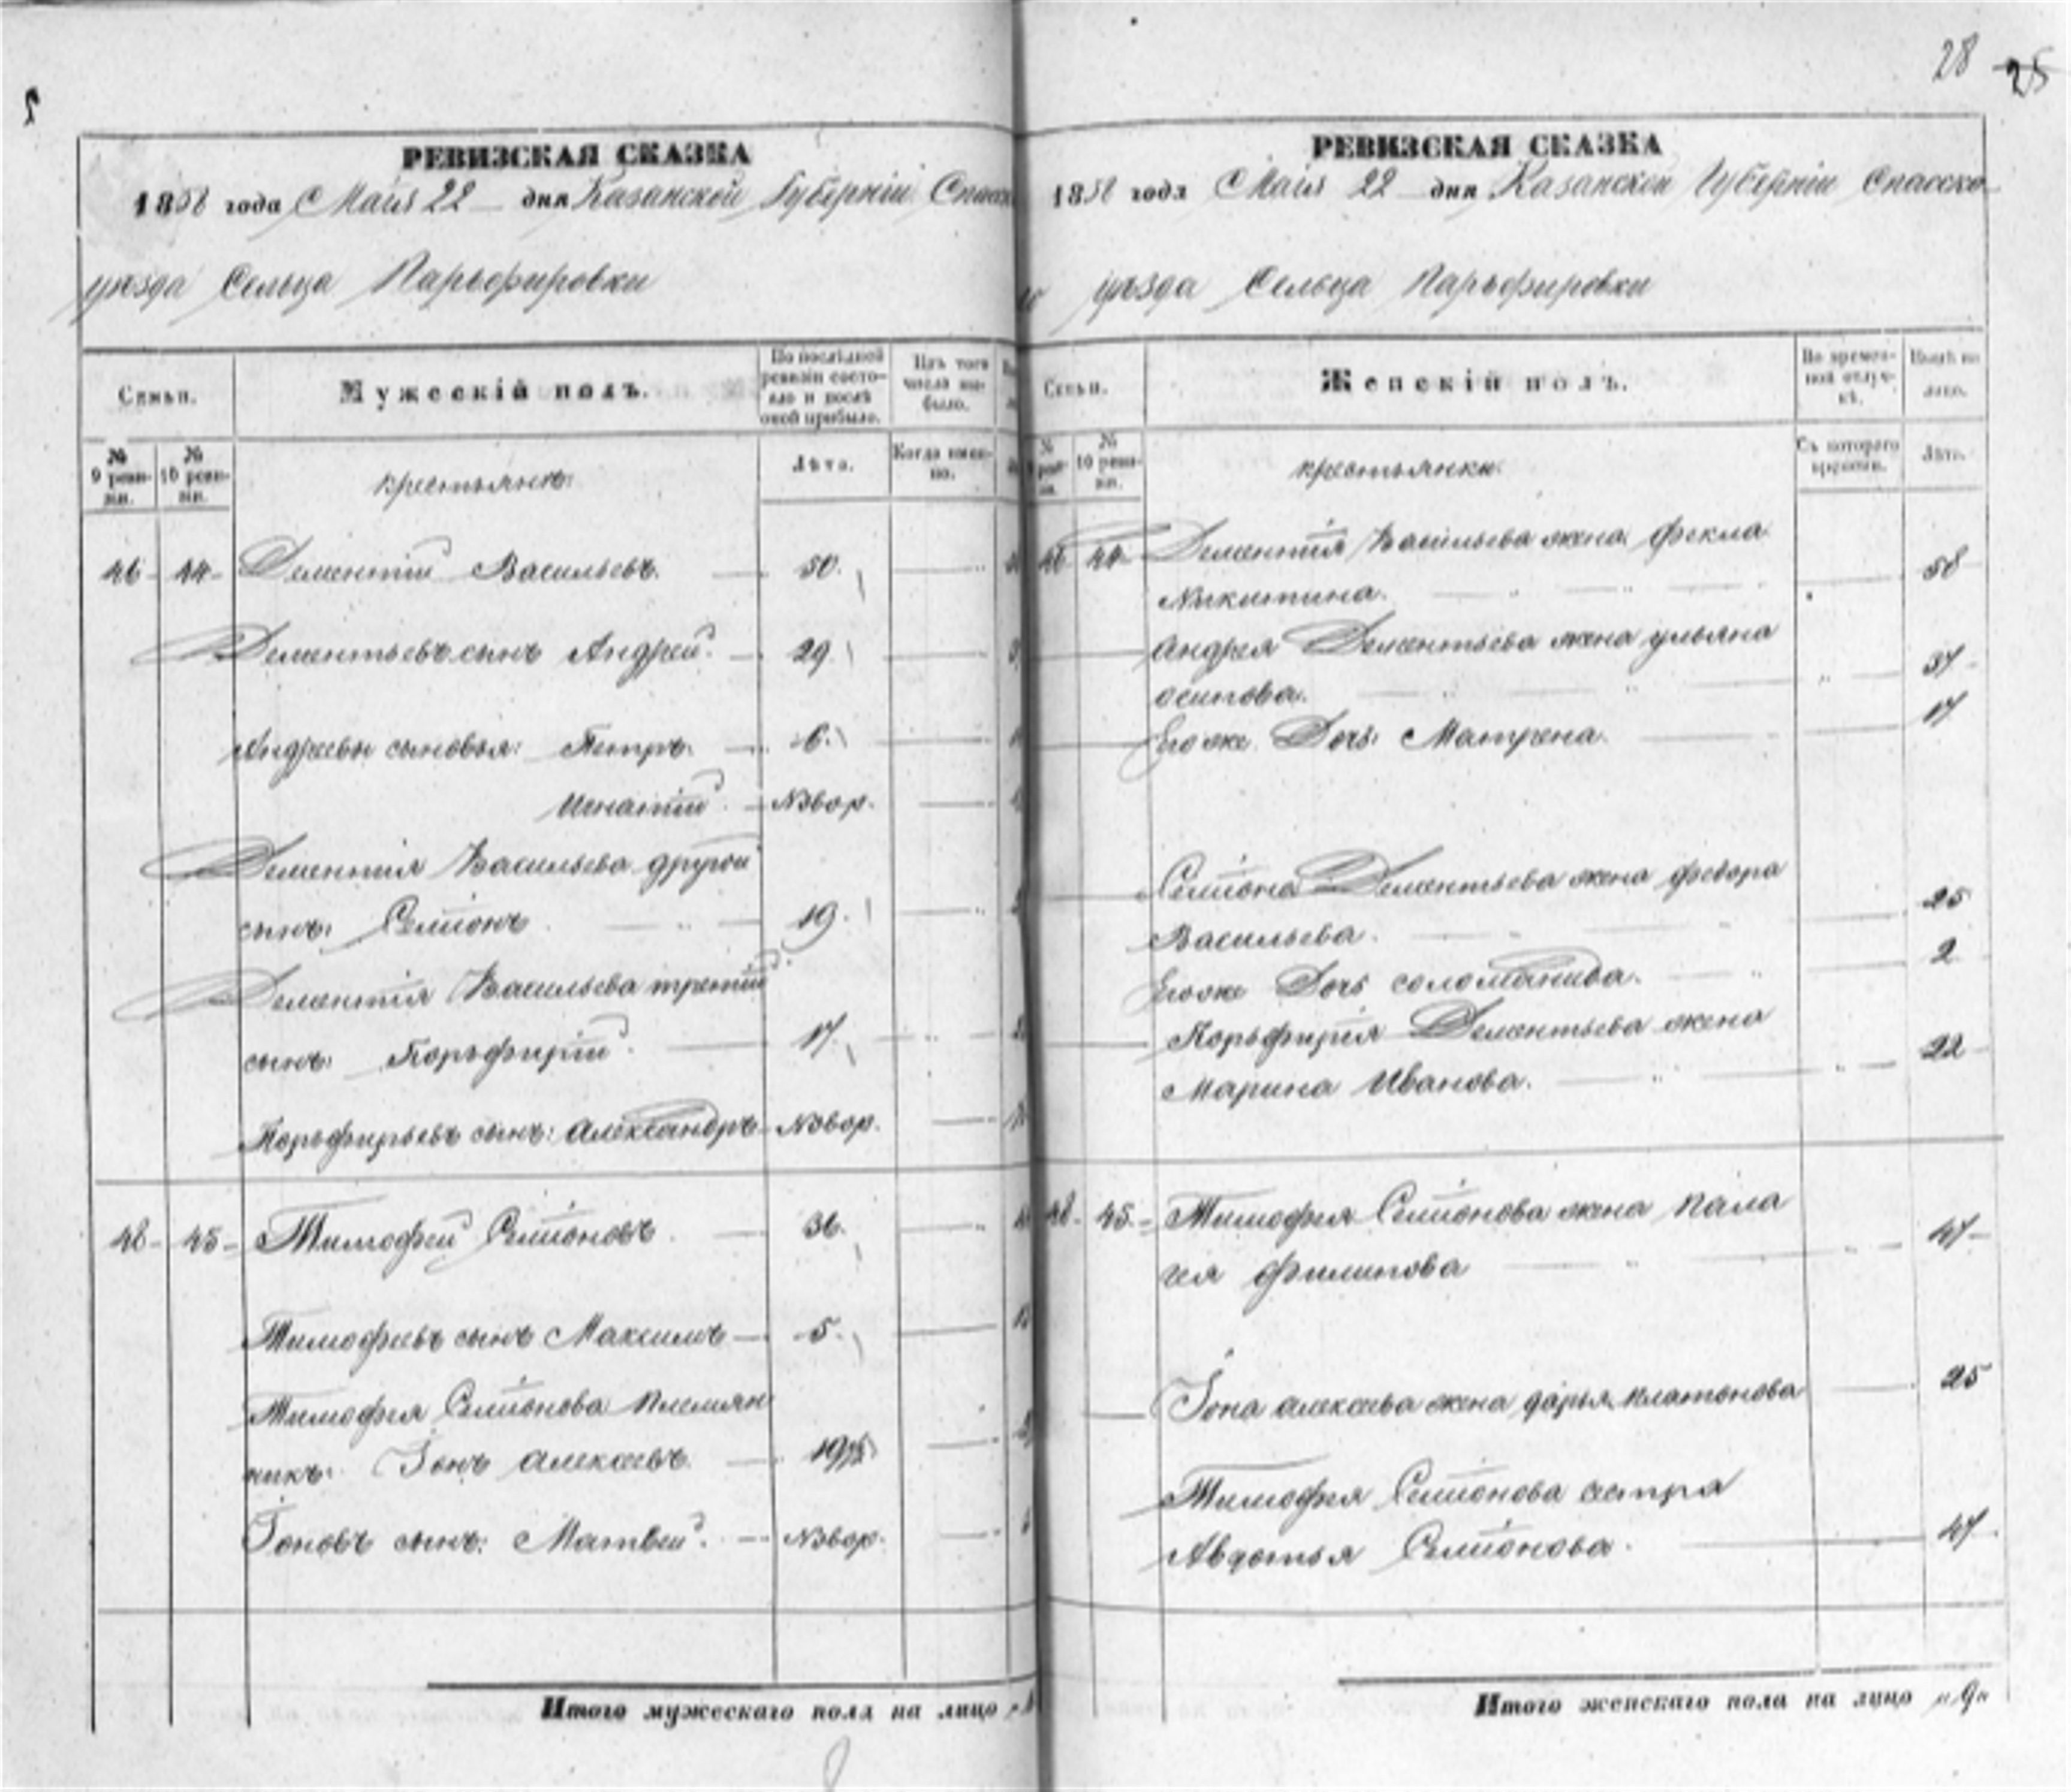 28 25
РЕВИЗСКАЯ СКАЗКА
1858 года Маія 22 дня Казанской Губерніи Спасск
уѣзда Сельца Парьфировки
Семьи.
Мужескій полъ.
По послѣдней ревизіи состояло и послѣ оной прибыло.
Изъ того числа выбыло.
№ 9 ревизіи.
№ 10 ревизіи.
крестьянѣ:
Лѣта.
Когда именно.
46 44 Дементій Васильевъ. 50.
Дементьевъ сынъ Андрей. 29
Андреевы сыновья: Петръ. 6.
Игнатій Нзвор.
Дементія Васильева другой
сынъ: Семіонъ 19.
Дементія Васильева третій
сынъ: Порьфирій. 17.
Порьфирьевъ сынъ: Александръ Нзвор.
48 45 Тимофей Семіоновъ 36.
Тимофеевъ сынъ Максимъ 5.
Тимофея Семіонова племян
никъ: Іонъ Алексеевъ 19
Іоновъ сынъ: Матвей. Нзвор.
Итого мужескаго пола на лицо
РЕВИЗСКАЯ СКАЗКА
1858 года Маія 22 дня Казанской Губерніи Спасско
го уѣзда Сельца Парьфировки
Семьи.
Женскій полъ.
Во временной отлучкѣ.
Нынѣ на лицо.
№ 9 ревизіи.
№ 10 ревизіи.
крестьянки.
Съ котораго времени.
Лѣта.
46 44 Дементія Васильева жена фекла
Никитина. 58
Андрея Дементьева жена ульяна
осипова. 37
Его же Дочь Матрена. 17
Семіона Дементьева жена федора
Васильева. 25
Его же Дочь соломанида. 2
Порьфирія Дементьева жена
Марина Иванова. 22
48 45 Тимофея Семіонова жена пала
гея филипова 47
Іона алексеева жена дарья платонова 25
Тимофея Семіонова сестра
Авдотья Семіонова. 47
Итого женскаго пола на лицо „9„